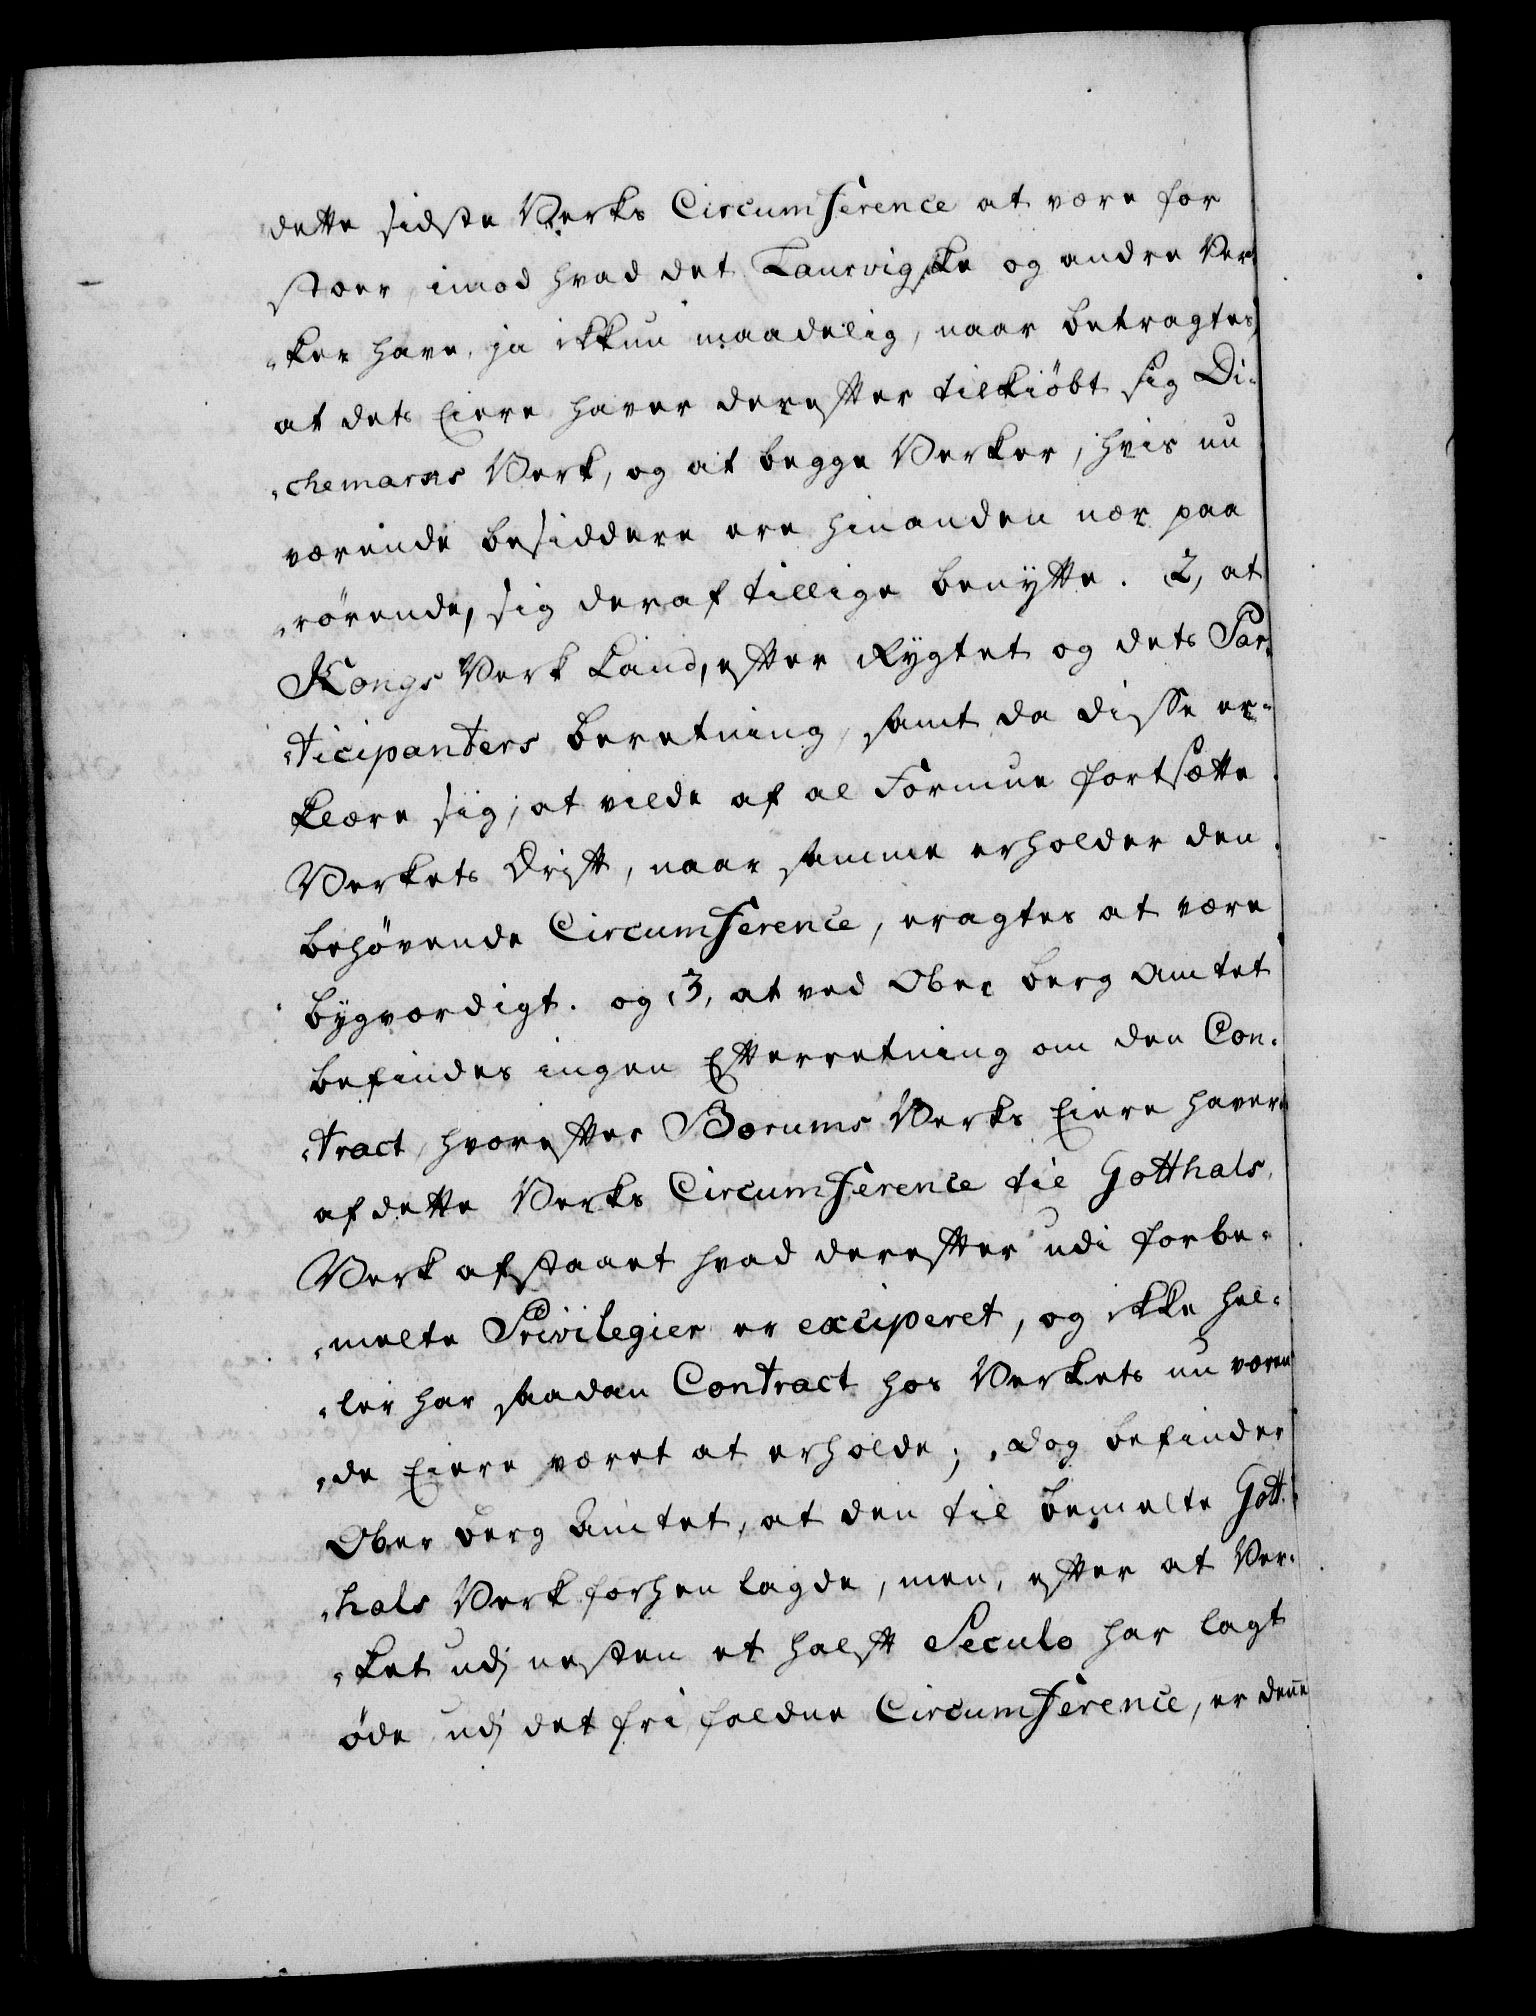 dette sidste Verks Circumference at være for
stoer imod hvad det Laurvigske og andre Ver¬
„ker have, ja ikkun maadelig, naar betragtes,
at dets Eiere haver derefter tilkiöbt sig Di¬
„chemarks Verk, og at begge Verker, hvis nu
værende besiddere ere hinanden nær paa
„rörende, sig deraf tillige benytte. 2, at
Kongs Verk Land, efter Rygtet og dets Par¬
„ticipanters beretning, samt da disse er¬
klære sig, at vilde af al Formue fortsætte
Verkets Drift, naar samme erholder den
behövende Circumference, eragtes at være
bygværdigt. og 3, at ved Ober berg Amtet
befindes ingen Efterretning om den Con¬
„tract, hvorefter Bærums Verks Eiere haver
af dette Verks Circumference til Gotthals
Verk afstaaet hvad derefter udi forbe¬
„melte Privilegier er exciperet, og ikke hel¬
„ler har saadan Contract hos Verkets nu væren
„de Eiere været at erholde; dog befinder
Ober berg Amtet, at den til bemelte Gott¬
„hals Verk forhen lagde, men, efter at Ver¬
„ket udj nesten et halft Seculo har lagt
öde, udj det fri faldne Circumference, er denne